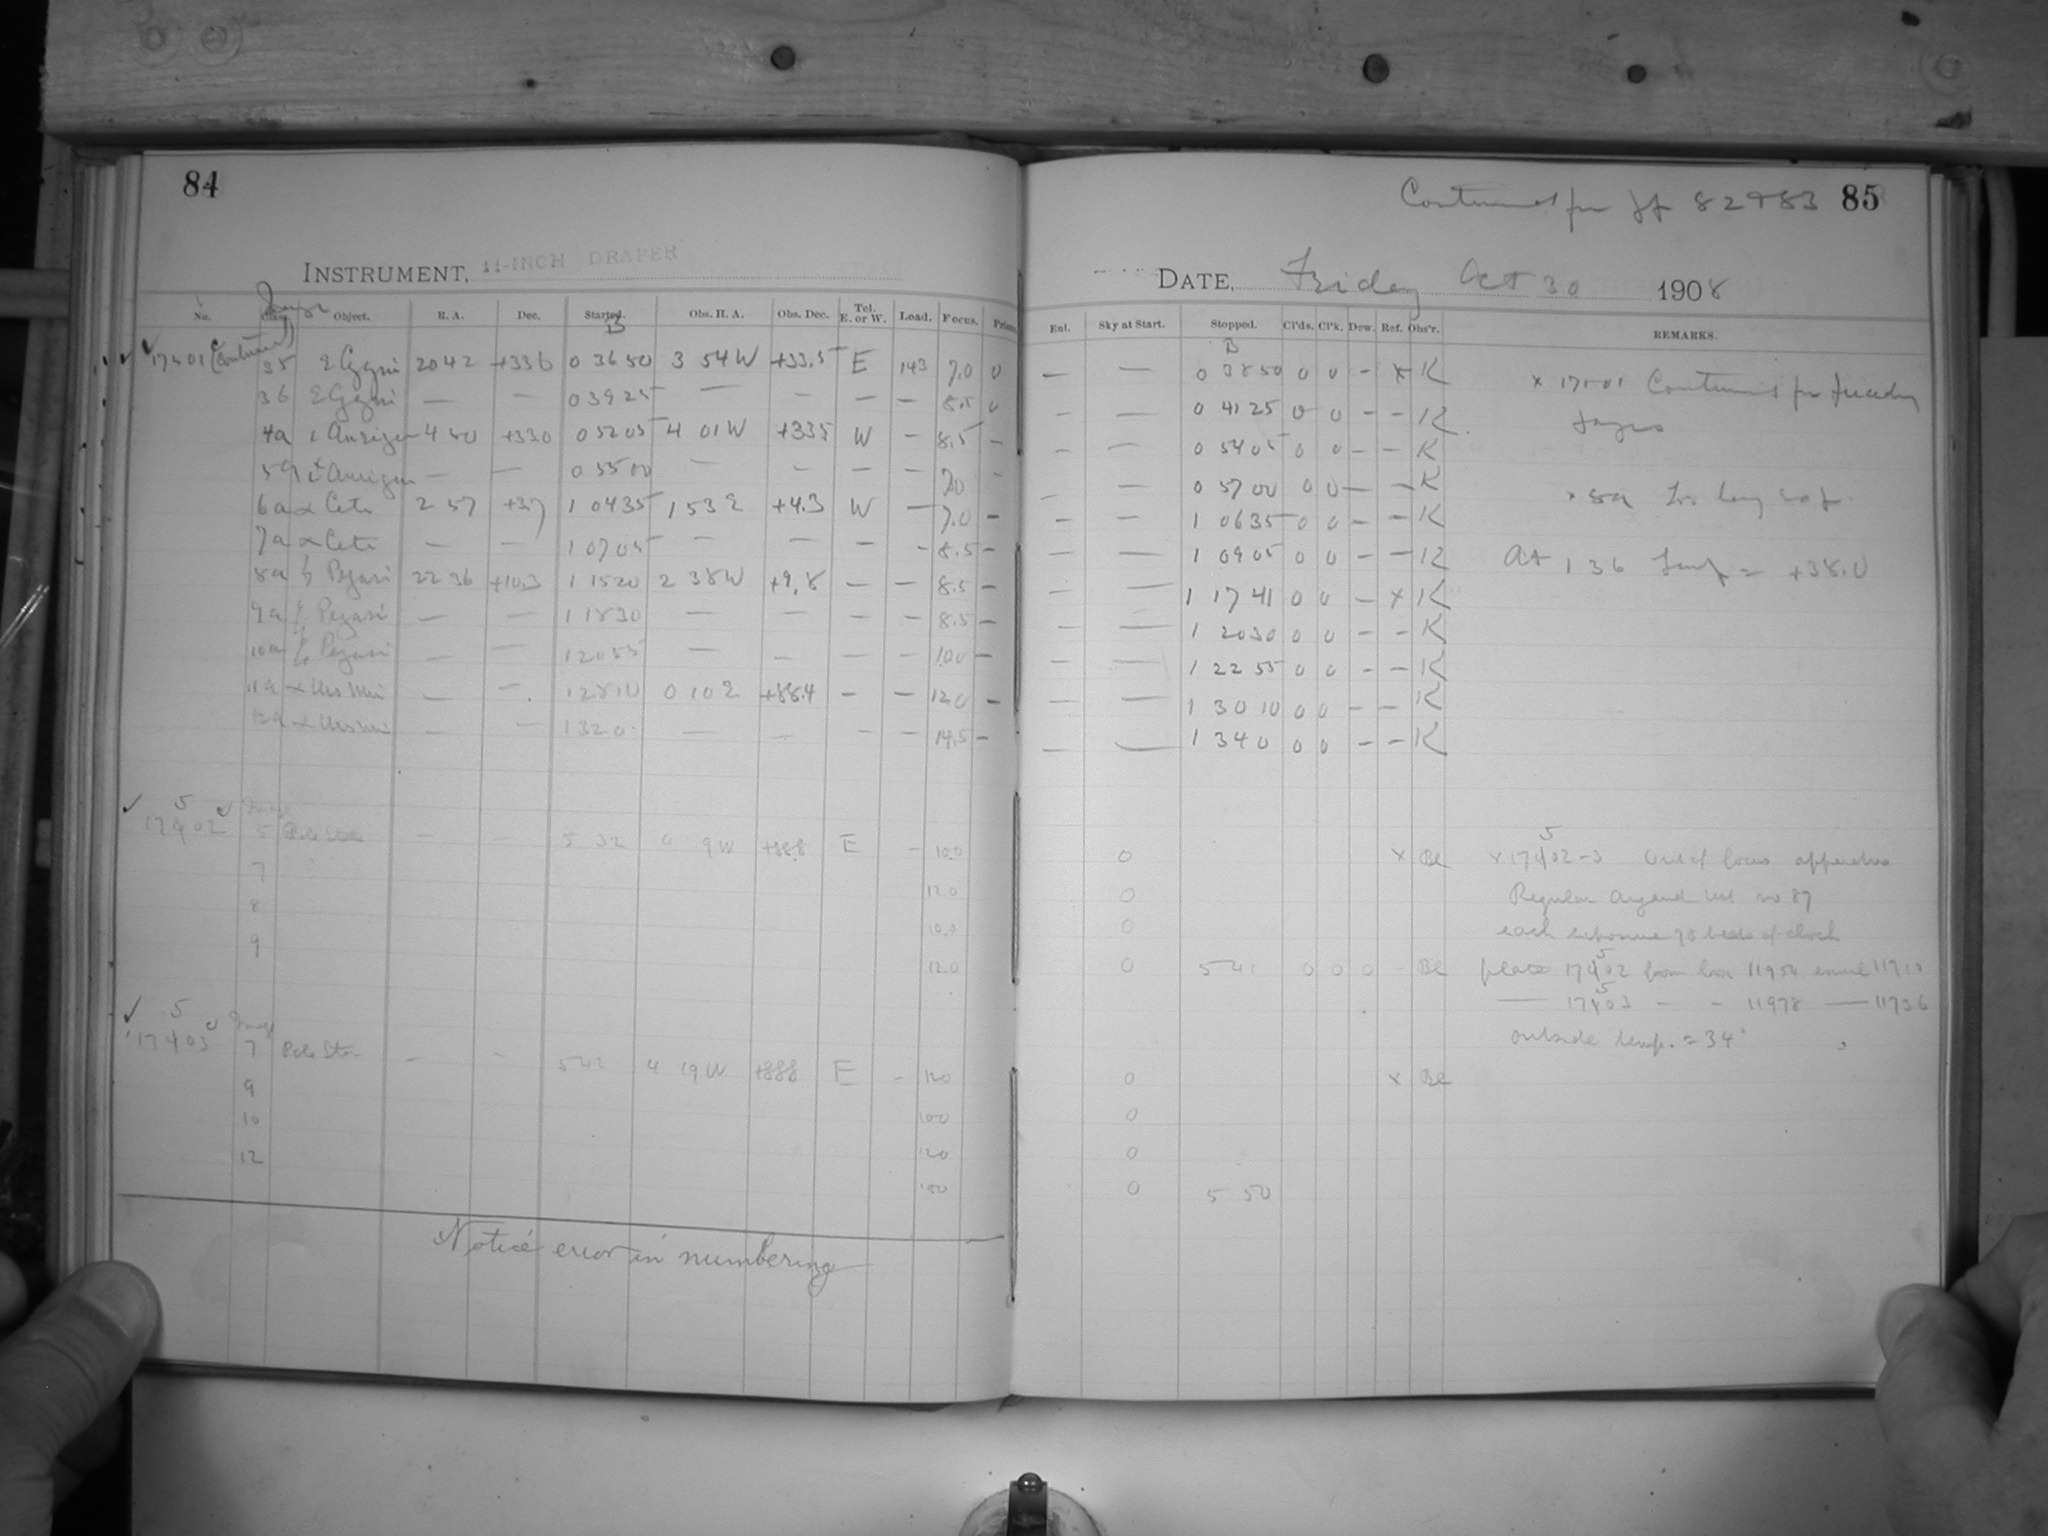 84
INSTRUMENT, 11-INCH DRAPER
No. Class Image Object. R. A. Dec. Started. Obs. H. A. Obs. Dec. Tel. E. or W. Load. Focus. Prisms
B
17501 (Continued) 35 ε Cygni 20 42 +33.6 0 36 50 3 54 W +33.5 E 143 7.0 0
36 ε Cygni — — 0 39 25 — — — — 8.5 0
4a ι Aurigae 4 50 +33.0 0 52 05 4 01 W +33.5 W — 8.5 —
5a ι Aurigae — — 0 55 00 — — — — 7.0 -
6a α Ceti 2 57 +3.7 1 04 35 1 53 E +4.3 W — 7.0 —
7a α Ceti — — 1 07 05 — — — - 8.5 —
8a Pegasi 22 36 +10.3 1 15 20 2 38 W +9.8 — — 8.5 —
9a Pegasi — — 1 18 30 — — — — 8.5 —
10a Pegasi — — 1 20 55 — — — — 10.0 —
11a α Urs Min — — 1 28 10 0 10 E +88.4 — — 12.0 —
12a α Urs Min — — 1 32 0 — — — — 14.5 —
5
17402 Image 5 Pole Star — — 5 32 4 9 W +88.8 E - 10.0
7 12.0
8 10.0
9 12.0
5
17403 Image 7 Pole Star - - 5 42 4 19 W +88.8 E - 12.0
9 10.0
10 12.0
12
Notice error in numbering
Continued from pp 82 & 83 85
DATE, Friday Oct 30 1908
Enl. Sky at Start. Stopped. Cl'ds. Cl'k. Dew. Ref. Obs'r. REMARKS.
B
— — 0 38 50 0 0 - x K x 17501 Continued from preceding
— — 0 41 25 0 0 - - K pages
— — 0 54 05 0 0 - - K
— — 0 57 00 0 0 — - K x 8a Too long exp.
— — 1 06 35 0 0 - - K
— — 1 09 05 0 0 - - K At 1 36 Temp = +38.0
— — 1 17 41 0 0 - x K
— — 1 20 30 0 0 - - K
— — 1 22 55 0 0 - - K
— — 1 30 10 0 0 - - K
— — 1 34 0 0 0 - - K
5
0 x Be x 17402-3 Out of focus apparatus
0 Regular Argand no 87
0 each exposure 70 beats of clock
5
0 5 41 0 0 0 - Be plate 17402 from box 11954 emul 11710
5
— 17403 - - 11978 — 11736
outside temp. = 34°
0 x Be
0
0
0 5 50